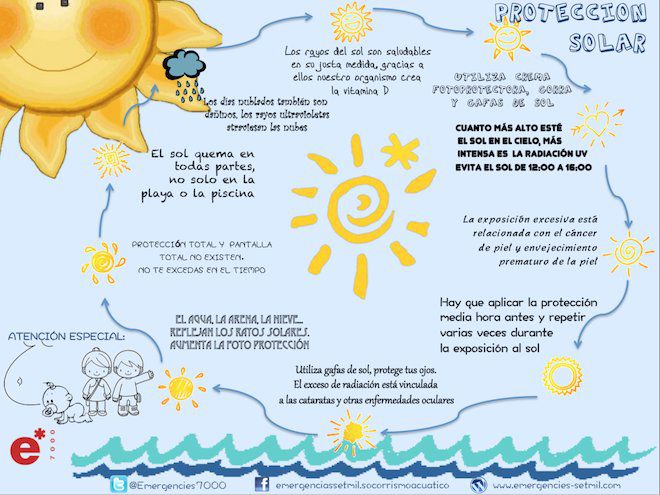 PROTECCION
SOLAR
Los rayos del sol son saludables
en su justa medida, gracias a
ellos nuestro organismo crea
la vitamina D
UTILIZA CREMA
FOTOPROTECTORA, GORRA
Y GAFAS DE SOL
CUANTO MÁS ALTO ESTÉ
EL SOL EN EL CIELO, MÁS
INTENSA ES LA RADIACIÓN UV
EVITA EL SOL DE 12:00 A 16:00
La exposición excesiva está
relacionada con el cáncer
de piel y envejecimiento
prematuro de la piel
Hay que aplicar la protección
media hora antes y repetir
varias veces durante
la exposición al sol
Utiliza gafas de sol, protege tus ojos.
El exceso de radiación está vinculada
a las cataratas y otras enfermedades oculares
EL AGUA, LA ARENA, LA NIEVE...
REFLEJAN LOS RATOS SOLARES.
AUMENTA LA FOTO PROTECCIÓN
PROTECCIÓN TOTAL Y PANTALLA
TOTAL NO EXISTEN.
NO TE EXCEDAS EN EL TIEMPO
El sol quema en
todas partes,
no solo en la
playa o la piscina
Los días nublados también son
dañinos, los rayos ultravioletas
atraviesan las nubes
ATENCIÓN ESPECIAL:
e*
7000
@Emergencies7000
emergenciassetmil.socorrismoacuatico
www.emergencies-setmil.com